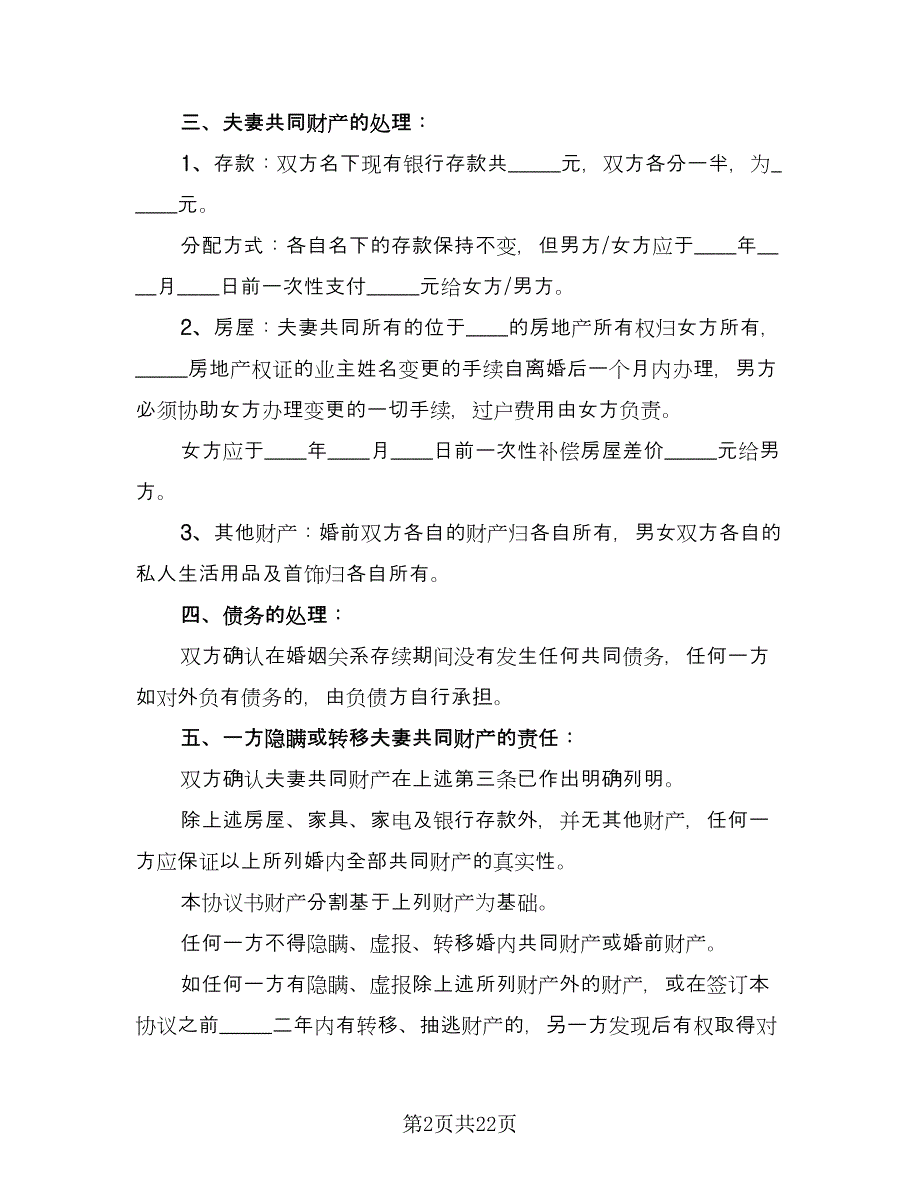 三、夫妻共同财产的处理：
1、存款：双方名下现有银行存款共_____元，双方各分一半，为_
____元。
分配方式：各自名下的存款保持不变，但男方/女方应于____年__
__月____日前一次性支付_____元给女方/男方。
2、房屋：夫妻共同所有的位于____的房地产所有权归女方所有，
_____房地产权证的业主姓名变更的手续自离婚后一个月内办理，男方
必须协助女方办理变更的一切手续，过户费用由女方负责。
女方应于____年____月____日前一次性补偿房屋差价_____元给男
方。
3、其他财产：婚前双方各自的财产归各自所有，男女双方各自的
私人生活用品及首饰归各自所有。
四、债务的处理：
双方确认在婚姻关系存续期间没有发生任何共同债务，任何一方
如对外负有债务的，由负债方自行承担。
五、一方隐瞒或转移夫妻共同财产的责任：
双方确认夫妻共同财产在上述第三条已作出明确列明。
除上述房屋、家具、家电及银行存款外，并无其他财产，任何一
方应保证以上所列婚内全部共同财产的真实性。
本协议书财产分割基于上列财产为基础。
任何一方不得隐瞒、虚报、转移婚内共同财产或婚前财产。
如任何一方有隐瞒、虚报除上述所列财产外的财产，或在签订本
协议之前_____二年内有转移、抽逃财产的，另一方发现后有权取得对
第2页共22页